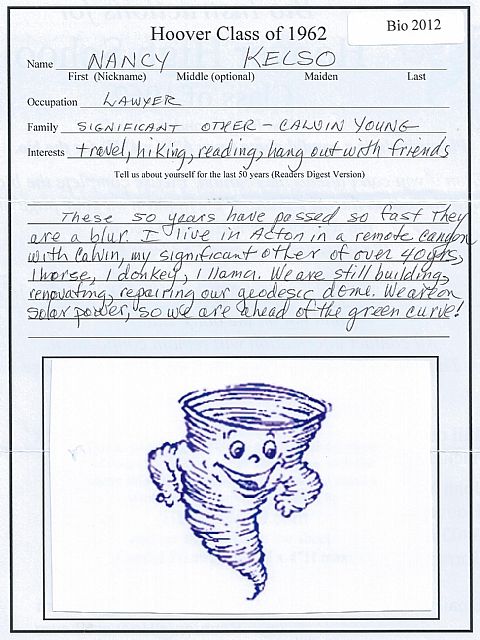 Bio 2012
Hoover Class of 1962
Name NANCY KELSO
First (Nickname) Middle (optional) Maiden Last
Occupation LAWYER
Family SIGNIFICANT OTHER - CALVIN YOUNG
Interests travel, hiking, reading, hang out with friends
Tell us about yourself for the last 50 years (Readers Digest Version)
These 50 years have passed so fast they
are a blur. I live in Acton in a remote canyon
with Calvin, my significant other of over 40 yrs,
1 horse, 1 donkey, 1 llama. We are still building,
renovating, repairing our geodesic dome. We are on
solar power, so we are ahead of the green curve!